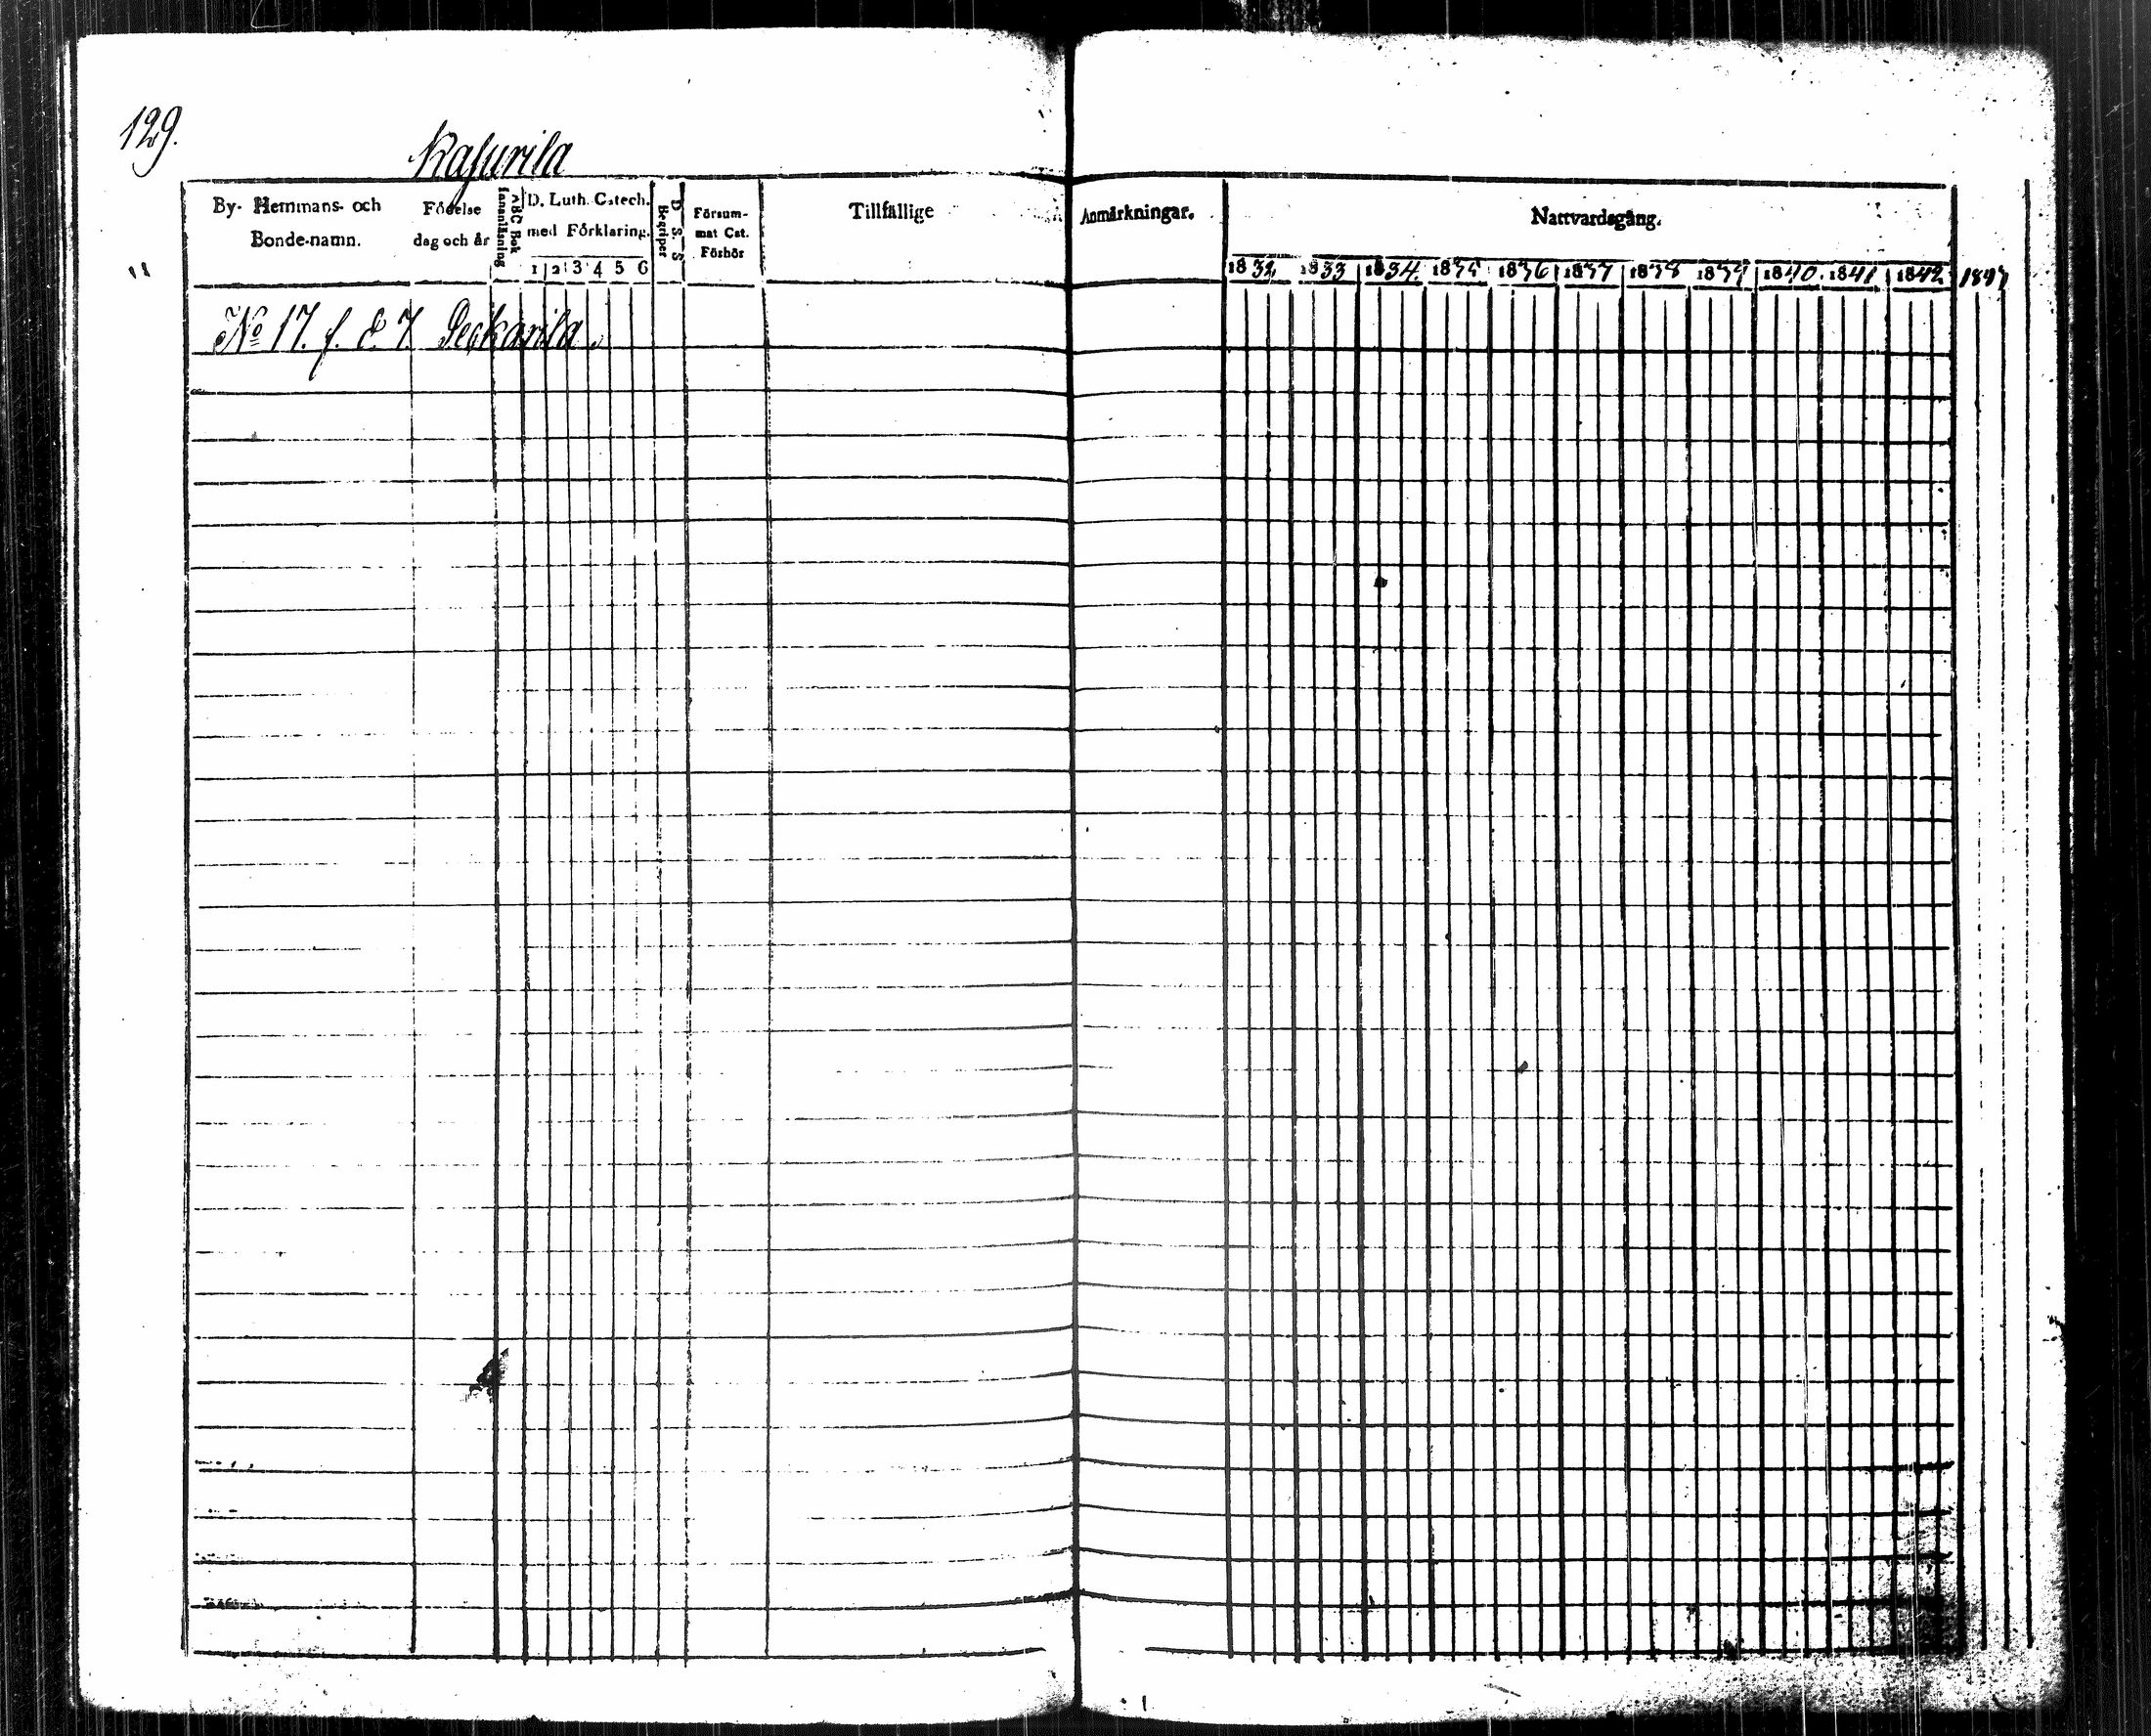 129.
Kasurila
By- Hemmans- och
Bonde-namn.
Födelse
dag och år
ABC Bok
Innanläsning
D. Luth. Catech.
med Förklaring.
1 2 3 4 5 6
D. S. S
Begriper
Försum-
mat Cat.
Förhör
Tillfällige
Anmärkningar.
Nattvardsgång.
1832 1833 1834. 1835 1836 1837 1838 1839 1840. 1841 1842 1843
"
No 17. f. d. 7 Peckarila.